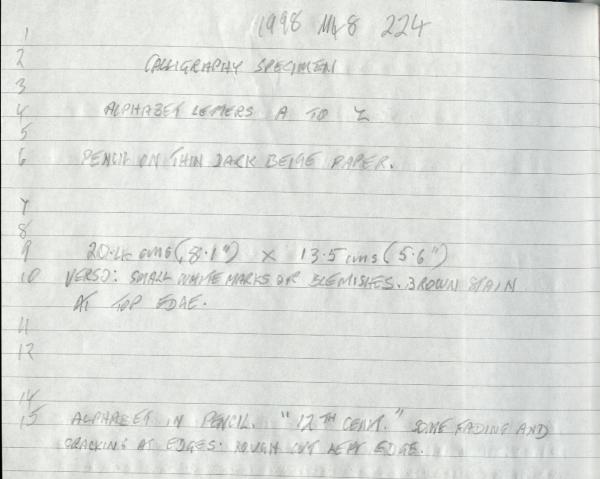 1998 My 8 224
1
2 CALLIGRAPHY SPECIMEN
3
4 ALPHABET LETTERS A TO Z
5
6 PENCIL ON THIN DARK BEIGE PAPER.
7
8
9 20.4 cms (8.1") x 13.5 cms (5.6")
10 VERSO: SMALL WHITE MARKS OR BLEMISHES. BROWN STAIN
AT TOP EDGE.
11
12
14
15 ALPHABET IN PENCIL. "12TH CENT." SOME FADING AND
CRACKING AT EDGES. ROUGH CUT LEFT EDGE.